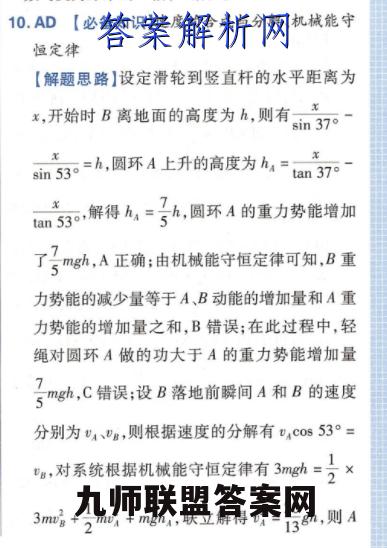 10. AD 【必备知识】速度的合成与分解、机械能守
答案解析网
恒定律
【解题思路】设定滑轮到竖直杆的水平距离为
x,开始时 B 离地面的高度为 h,则有 x/sin 37° −
x/sin 53° = h,圆环 A 上升的高度为 h_A = x/tan 37° −
x/tan 53°,解得 h_A = 7/5 h,圆环 A 的重力势能增加
了 7/5 mgh,A 正确;由机械能守恒定律可知,B 重
力势能的减少量等于 A、B 动能的增加量和 A 重
力势能的增加量之和,B 错误;在此过程中,轻
绳对圆环 A 做的功大于 A 的重力势能增加量
7/5 mgh,C 错误;设 B 落地前瞬间 A 和 B 的速度
分别为 v_A、v_B,则根据速度的分解有 v_A cos 53° =
v_B,对系统根据机械能守恒定律有 3mgh = 1/2 ×
九师联盟答案网
3mv_B² + 1/2 mv_A² + mgh_A,联立解得 v_A² = /13 gh,则 A